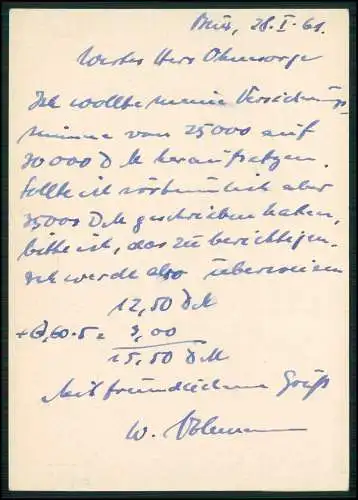 28.I.61.
Werter Herr Ohnesorge
Ich wollte meine Versicherungs
summe von 25000 auf
30000 DM heraufsetzen.
Sollte ich irrtümlich aber
35000 DM geschrieben haben,
bitte ich, das zu berichtigen.
Ich werde also überweisen
12,50 DM
+0,60·5 = 3,00
15,50 DM
Mit freundlichem Gruß
W.